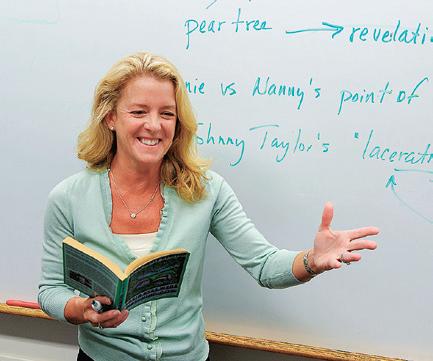 pear tree → revelati
nie vs Nanny's point of
Johnny Taylor's "lacerat